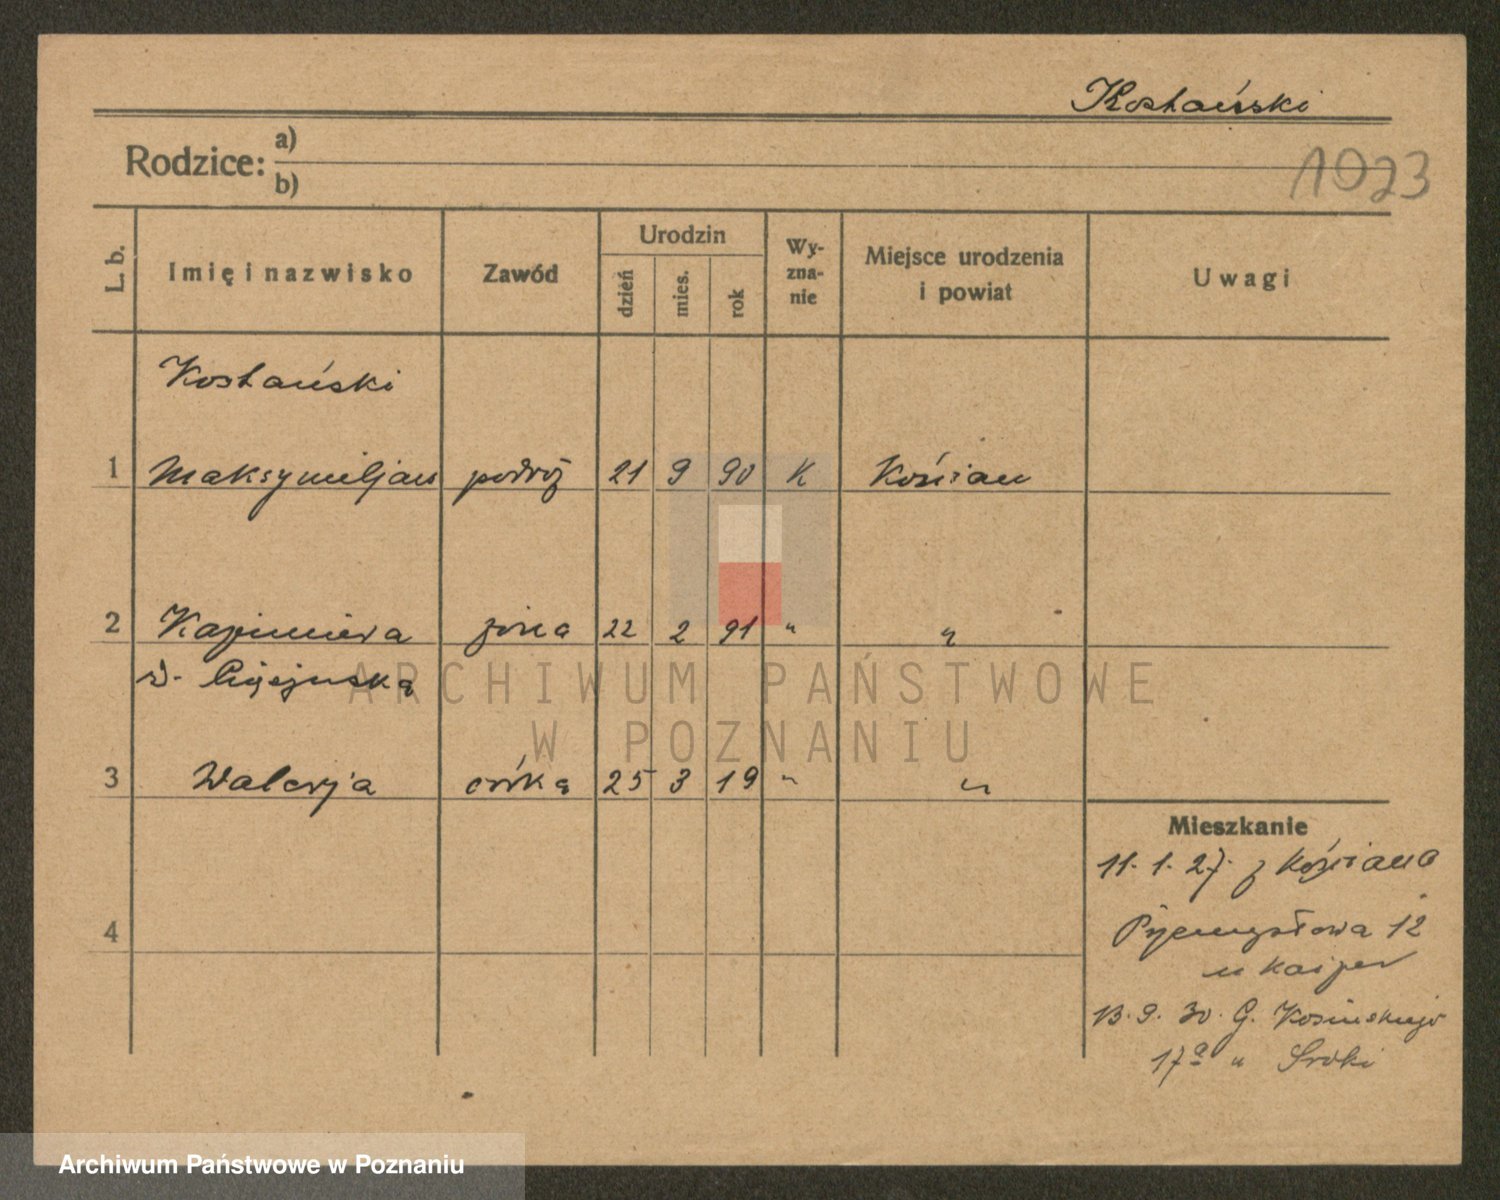 Kostański
Rodzice: a)
b)
1923
L. b. Imię i nazwisko Zawód Urodzin dzień mies. rok Wy-zna-nie Miejsce urodzenia i powiat Uwagi
Kostański
1 Maksymiljan podróż 21 9 90 K Kościan
2 Kazimiera żona 22 2 91 " "
3 Walerja córka 25 3 19 " "
4
Mieszkanie
11.1.27. z Kościana
Przemysłowa 12
u Kaiper
13.9.30. G. Kosińskiego
17a u Sroki
ARCHIWUM PAŃSTWOWE
W POZNANIU
Archiwum Państwowe w Poznaniu